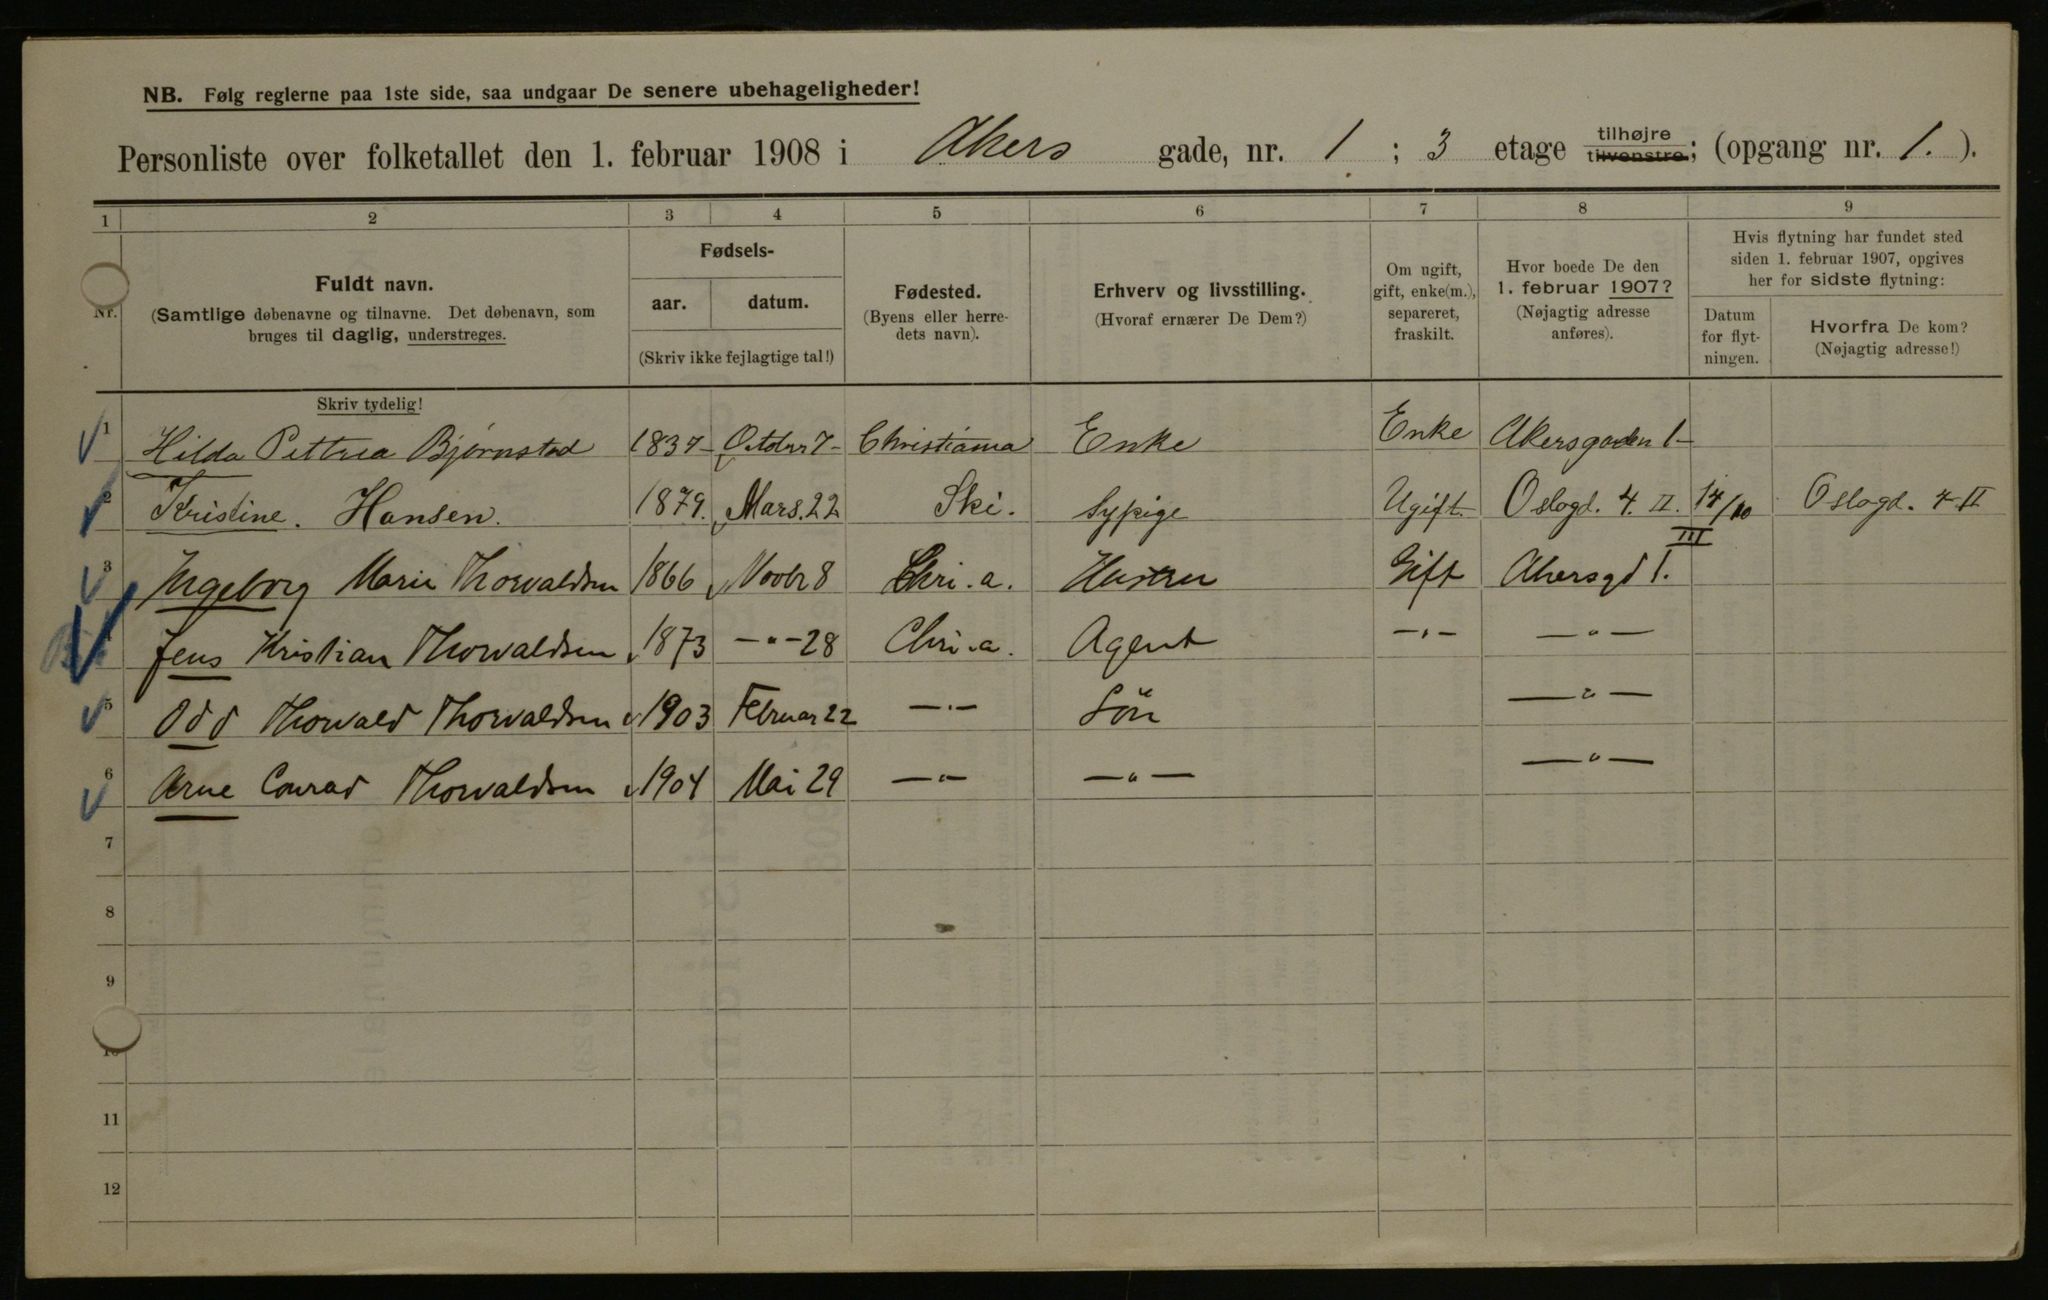 NB. Følg reglerne paa 1ste side, saa undgaar De senere ubehageligheder!
Personliste over folketallet den 1. februar 1908 i Akers gade, nr. 1 ; 3 etage tilhøjre tilvenstre; (opgang nr. 1. ).
1 2 3 4 5 6 7 8 9
Nr. Fuldt navn. (Samtlige døbenavne og tilnavne. Det døbenavn, som bruges til daglig, understreges. Skriv tydelig!
Fødsels- aar. datum. (Skriv ikke fejlagtige tal!)
Fødested. (Byens eller herredets navn).
Erhverv og livsstilling. (Hvoraf ernærer De Dem?)
Om ugift, gift, enke(m.), separeret, fraskilt.
Hvor boede De den 1. februar 1907? (Nøjagtig adresse anføres).
Hvis flytning har fundet sted siden 1. februar 1907, opgives her for sidste flytning:
Datum for flytningen. Hvorfra De kom? (Nøjagtig adresse!)
1 Hilda Pettrea Bjørnstad 1837- October 7- Christiania Enke Enke Akersgaden 1-
2 Kristine. Hansen. 1879. Mars. 22 Ski. Sypige Ugift. Oslogd. 4. II. 14/10 Oslogd. 4 II
3 Ingeborg Marie Thorvaldsen 1866 Novbr 8 Chri.a. Hustru Gift Akersgd 1. III
4 Jens Kristian Thorvaldsen 1873 -"- 28 Chri.a. Agent -"- -"-
5 Odd Thorvald Thorvaldsen 1903 Februar 22 -"- Sön -"-
6 Arne Conrad Thorvaldsen 1904 Mai 29 -"- -"- -"-
7
8
9
10
11
12